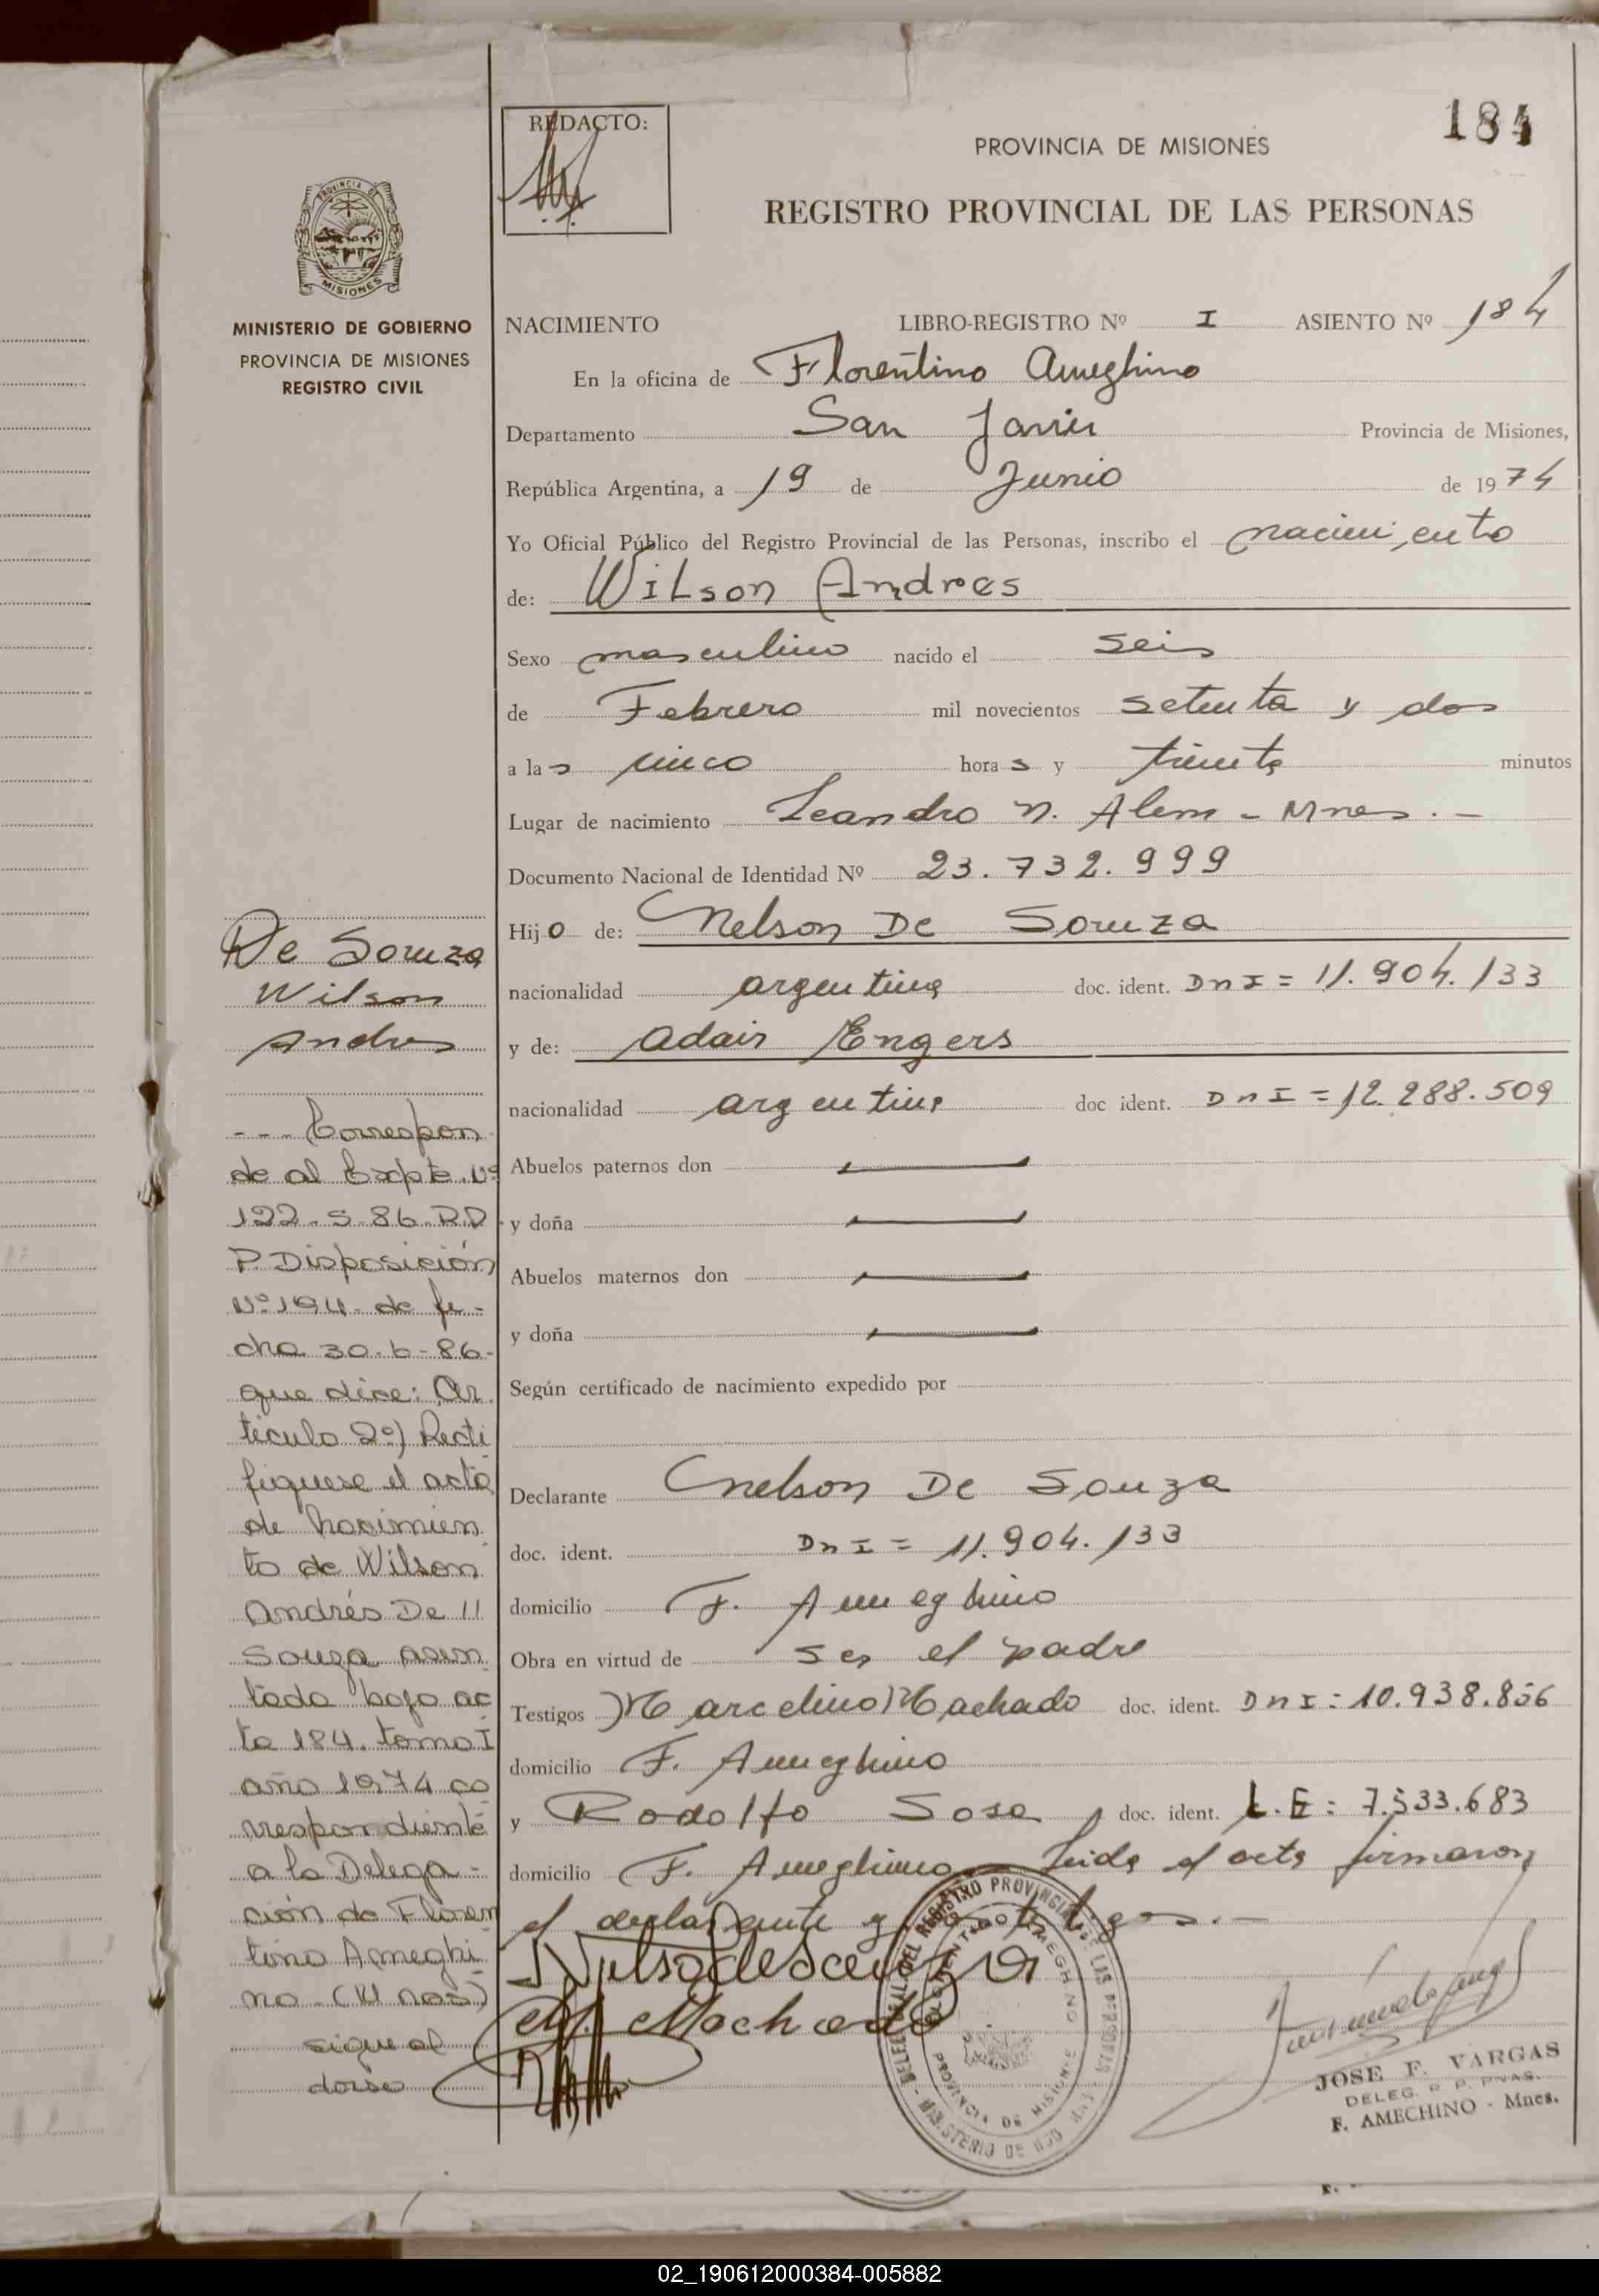 184
REDACTO:
PROVINCIA DE MISIONES
REGISTRO PROVINCIAL DE LAS PERSONAS
PROVINCIA DE
MISIONES
MINISTERIO DE GOBIERNO
PROVINCIA DE MISIONES
REGISTRO CIVIL
NACIMIENTO LIBRO-REGISTRO Nº I ASIENTO Nº 184
En la oficina de Florentino Ameghino
Departamento San Javier Provincia de Misiones,
República Argentina, a 19 de Junio de 1974
Yo Oficial Público del Registro Provincial de las Personas, inscribo el nacimiento
de: Wilson Andres
Sexo masculino nacido el seis
de Febrero mil novecientos setenta y dos
a las cinco horas y treinta minutos
Lugar de nacimiento Leandro N. Alem - Mnes. -
Documento Nacional de Identidad Nº 23.732.999
Hijo de: Nelson De Souza
nacionalidad argentina doc. ident. DnI = 11.904.133
y de: Adair Engers
nacionalidad argentina doc ident. DnI = 12.288.509
Abuelos paternos don
y doña
Abuelos maternos don
y doña
Según certificado de nacimiento expedido por
Declarante Nelson De Souza
doc. ident. DnI = 11.904.133
domicilio F. Ameghino
Obra en virtud de ser el padre
Testigos Marcelino Machado doc. ident. DnI: 10.938.856
domicilio F. Ameghino
y Rodolfo Sosa doc. ident. L.E: 7.533.683
domicilio F. Ameghino Leida el acta firmaron
el declarante y testigos. -
M. Machado
De Souza
Wilson
Andres
--- Correspon
de al Expte. Nº
122-S-86-R.P
P. Disposición
Nº 194 de fe-
cha 30-6-86-
que dice: Ar
tículo 2º) Recti
fíquese el acta
de Nacimien
to de Wilson
Andrés De //
Souza asen
tado bajo ac
ta 184. tomo I
año 1974 co
rrespondiente
a la Delega-
ción de Floren
tino Ameghi
no - (Mnes)
sigue al
dorso
DELEG. DEL REGISTRO PROVINCIAL DE LAS PERSONAS
FLORENTINO AMEGHINO
PROVINCIA DE MISIONES
MINISTERIO DE
JOSE F. VARGAS
DELEG. R. P. PNAS.
F. AMECHINO - Mnes.
02_190612000384-005882